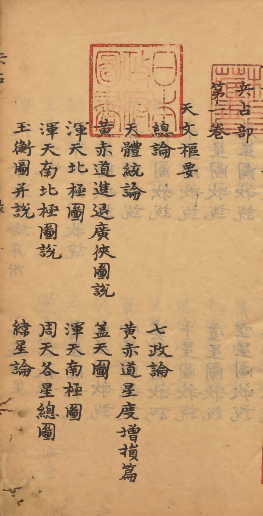 兵占部
第一卷
天文樞要
總論
七政論
天體統論
黃赤道星度增損篇
黃赤道進退廣狹圖說
蓋天圖
渾天北極圖
渾天南極圖
渾天南北極圖說
周天各星總圖
玉衡圖并說
緯星論